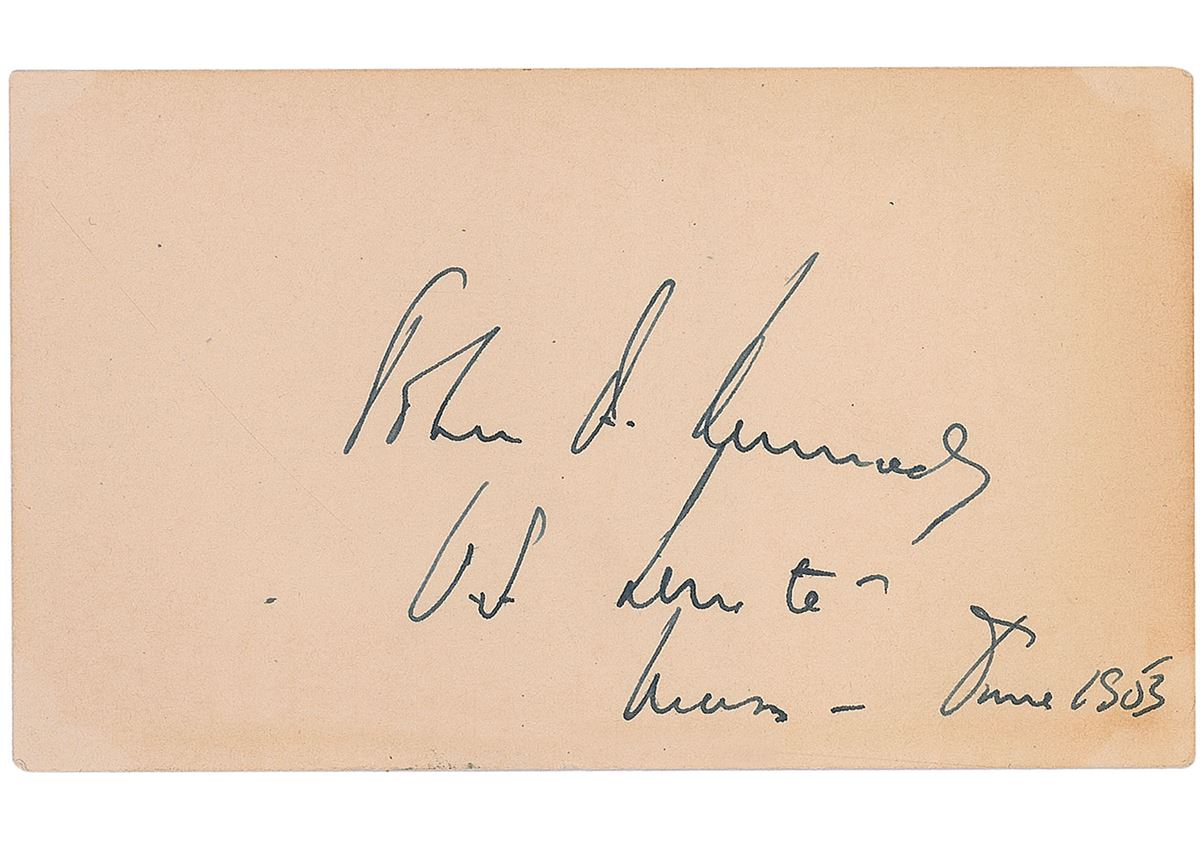 John F. Kennedy
US Senate -
Mass - June 1953